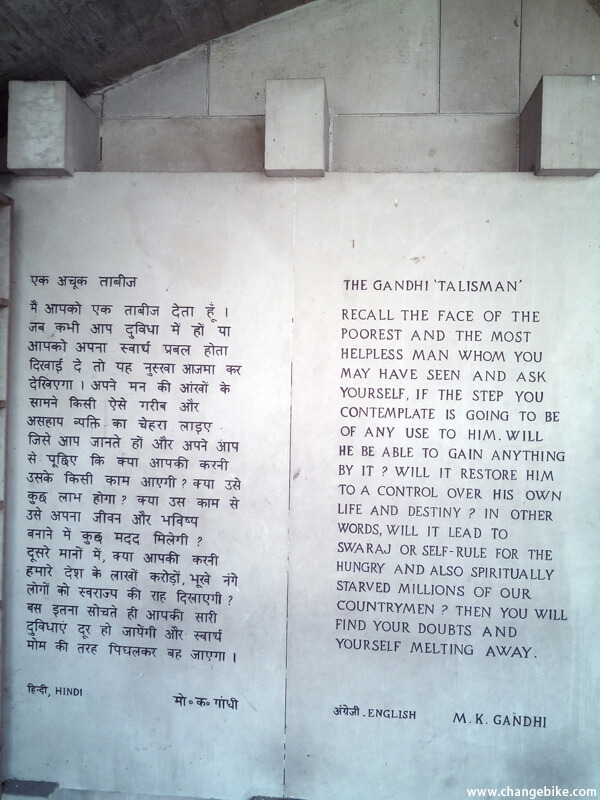 एक अचूक ताबीज
मैं आपको एक ताबीज देता हूँ ।
जब कभी आप दुविधा में हों या
आपको अपना स्वार्थ प्रबल होता
दिखाई दे तो यह नुस्खा आजमा कर
देखिएगा । अपने मन की आंखों के
सामने किसी ऐसे गरीब और
असहाय व्यक्ति का चेहरा लाइए
जिसे आप जानते हों और अपने आप
से पूछिए कि क्या आपकी करनी
उसके किसी काम आएगी ? क्या उसे
कुछ लाभ होगा ? क्या उस काम से
उसे अपना जीवन और भविष्य
बनाने में कुछ मदद मिलेगी ?
दूसरे मानों में, क्या आपकी करनी
हमारे देश के लाखों करोड़ों, भूखे नंगे
लोगों को स्वराज्य की राह दिखाएगी ?
बस इतना सोचते ही आपकी सारी
दुविधाएं दूर हो जायेंगी और स्वार्थ
मोम की तरह पिघलकर बह जाएगा ।
हिन्दी, HINDI
मो० क० गांधी
THE GANDHI 'TALISMAN'
RECALL THE FACE OF THE
POOREST AND THE MOST
HELPLESS MAN WHOM YOU
MAY HAVE SEEN AND ASK
YOURSELF, IF THE STEP YOU
CONTEMPLATE IS GOING TO BE
OF ANY USE TO HIM. WILL
HE BE ABLE TO GAIN ANYTHING
BY IT ? WILL IT RESTORE HIM
TO A CONTROL OVER HIS OWN
LIFE AND DESTINY ? IN OTHER
WORDS, WILL IT LEAD TO
SWARAJ OR SELF-RULE FOR THE
HUNGRY AND ALSO SPIRITUALLY
STARVED MILLIONS OF OUR
COUNTRYMEN ? THEN YOU WILL
FIND YOUR DOUBTS AND
YOURSELF MELTING AWAY.
अंग्रेजी . ENGLISH
M. K. GANDHI
www.changebike.com